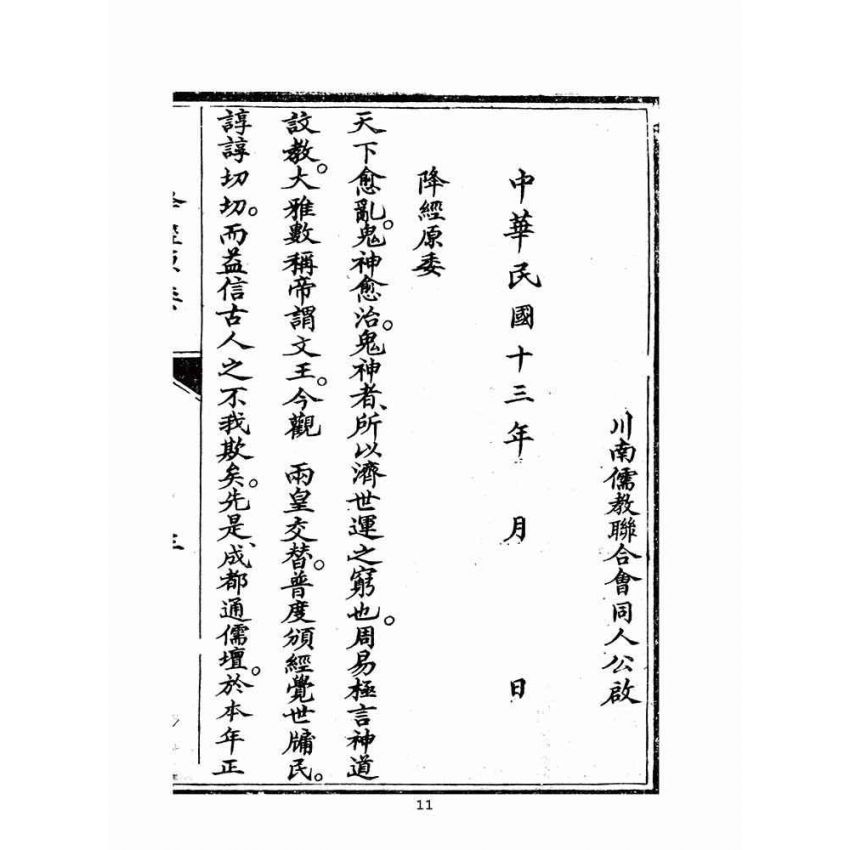 川南儒教聯合會同人公啟
中華民國十三年 月 日
降經原委
天下愈亂。鬼神愈治。鬼神者、所以濟世運之窮也。周易極言神道
設教。大雅數稱帝謂文王。今觀 兩皇交替。普度頒經覺世牖民。
諄諄切切。而益信古人之不我欺矣。先是、成都通儒壇。於本年正
11